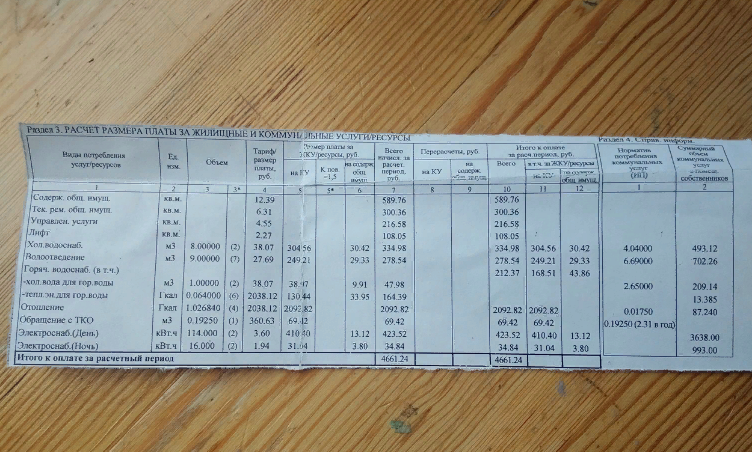 Раздел 3. РАСЧЕТ РАЗМЕРА ПЛАТЫ ЗА ЖИЛИЩНЫЕ И КОММУНАЛЬНЫЕ УСЛУГИ/РЕСУРСЫ Раздел 4. Справ. информ.
Виды потребления услуг/ресурсов Ед. изм. Объем Тариф/ размер платы, руб. Размер платы за ЖКУ/ресурсы, руб. Всего за расчет. период, руб. Перерасчеты, руб. Итого к оплате за расч.период, руб. Норматив потребления коммунальных услуг (НП) Суммарный объем коммунальных услуг собственников
на КУ К пов =1,5 на содерж. общ. имущ. на КУ на содерж. общ. имущ. Всего в т.ч. за ЖКУ/ресурсы на КУ на содерж. общ. имущ.
1 2 3 3* 4 5 5* 6 7 8 9 10 11 12 1 2
Содерж. общ. имущ. кв.м. 12.39 589.76 589.76
Тек. рем. общ. имущ. кв.м. 6.31 300.36 300.36
Управлен. услуги кв.м. 4.55 216.58 216.58
Лифт кв.м. 2.27 108.05 108.05
Хол.водоснаб. м3 8.00000 (2) 38.07 304.56 30.42 334.98 334.98 304.56 30.42 4.04000 493.12
Водоотведение м3 9.00000 (7) 27.69 249.21 29.33 278.54 278.54 249.21 29.33 6.69000 702.26
Горяч. водоснаб. (в т.ч.) 212.37 168.51 43.86
-хол.вода для гор.воды м3 1.00000 (2) 38.07 38.07 9.91 47.98 2.65000 209.14
-тепл.эн.для гор.воды Гкал 0.064000 (6) 2038.12 130.44 33.95 164.39 13.385
Отопление Гкал 1.026840 (4) 2038.12 2092.82 2092.82 2092.82 2092.82 0.01750 87.240
Обращение с ТКО м3 0.19250 (1) 360.63 69.42 69.42 69.42 69.42 0.19250 (2.31 в год)
Электроснаб.(День) кВт.ч 114.000 (2) 3.60 410.40 13.12 423.52 423.52 410.40 13.12 3638.00
Электроснаб.(Ночь) кВт.ч 16.000 (2) 1.94 31.04 3.80 34.84 34.84 31.04 3.80 993.00
Итого к оплате за расчетный период 4661.24 4661.24